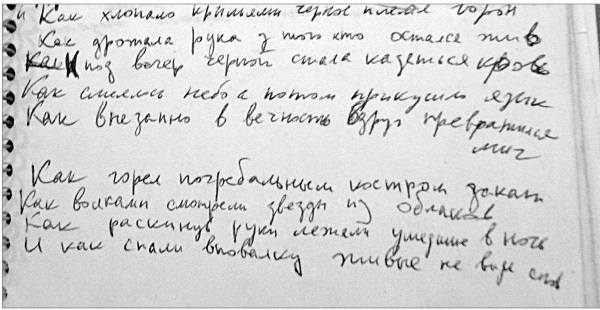 и Как хлопало крыльями черное племя ворон
Как дрожала рука у того кто остался жив
Как под вечер черной стала казаться кровь
Как смеялось небо а потом прикусило язык
Как внезапно в вечность вдруг превратился
миг
Как горел погребальным костром закат
Как волками смотрели звезды из облаков
Как раскинув руки лежали ушедшие в ночь
И как спали вповалку живые не видя снов